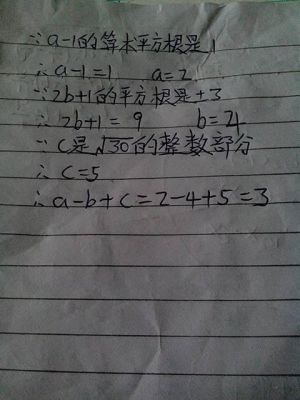 ∵a-1的算术平方根是1
∴a-1=1 a=2
∵2b+1的平方根是±3
∴2b+1=9 b=4
∵c是√30的整数部分
∴c=5
∴a-b+c=2-4+5=3